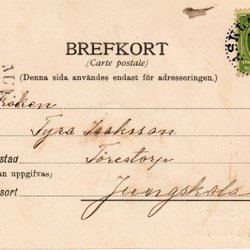 BREFKORT
(Carte postale)
(Denna sida användes endast för adresseringen.)
öken
Tyra Isaksson
stad Törestorp
an uppgifvas)
sort Jungskola